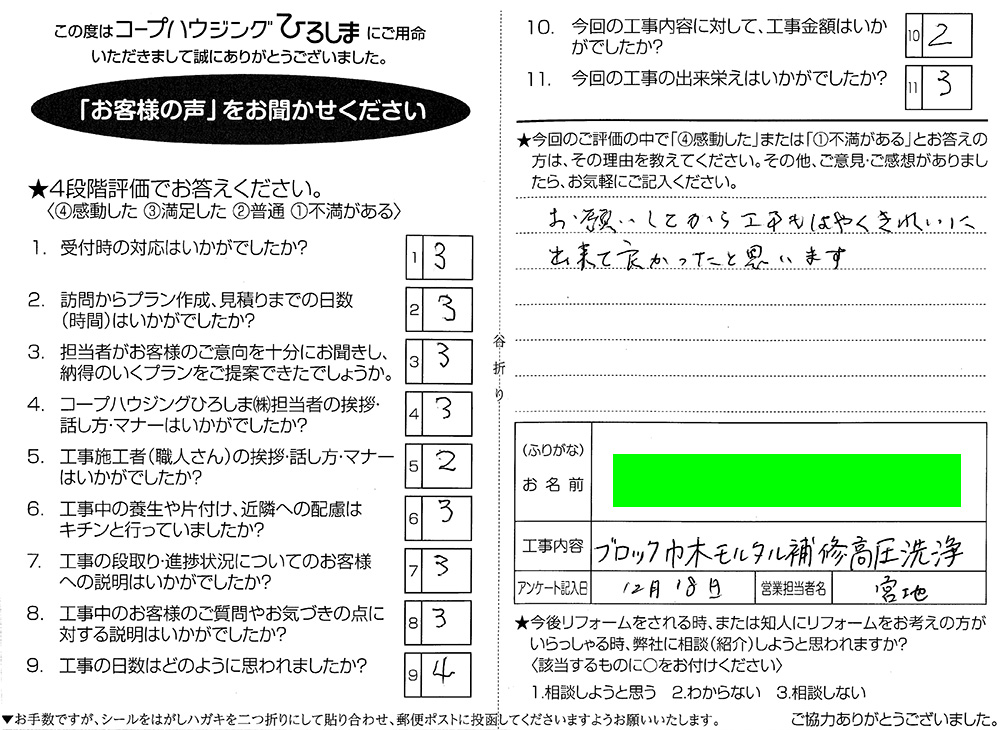 この度はコープハウジングひろしまにご用命
いただきまして誠にありがとうございました。
「お客様の声」をお聞かせください
★4段階評価でお答えください。
〈④感動した ③満足した ②普通 ①不満がある〉
1. 受付時の対応はいかがでしたか?
1 3
2. 訪問からプラン作成、見積りまでの日数
(時間)はいかがでしたか?
2 3
3. 担当者がお客様のご意向を十分にお聞きし、
納得のいくプランをご提案できたでしょうか。
3 3
4. コープハウジングひろしま㈱担当者の挨拶・
話し方・マナーはいかがでしたか?
4 3
5. 工事施工者(職人さん)の挨拶・話し方・マナー
はいかがでしたか?
5 2
6. 工事中の養生や片付け、近隣への配慮は
キチンと行っていましたか?
6 3
7. 工事の段取り・進捗状況についてのお客様
への説明はいかがでしたか?
7 3
8. 工事中のお客様のご質問やお気づきの点に
対する説明はいかがでしたか?
8 3
9. 工事の日数はどのように思われましたか?
9 4
▼お手数ですが、シールをはがしハガキを二つ折りにして貼り合わせ、郵便ポストに投函してくださいますようお願いいたします。
谷折り
10. 今回の工事内容に対して、工事金額はいか
がでしたか?
10 2
11. 今回の工事の出来栄えはいかがでしたか?
11 3
★今回のご評価の中で「④感動した」または「①不満がある」とお答えの
方は、その理由を教えてください。その他、ご意見・ご感想がありまし
たら、お気軽にご記入ください。
お願いしてから工事もはやくきれいに
出来て良かったと思います
(ふりがな)
お名前
工事内容 ブロック巾木モルタル補修高圧洗浄
アンケート記入日 12月18日 営業担当者名 宮地
★今後リフォームをされる時、または知人にリフォームをお考えの方が
いらっしゃる時、弊社に相談(紹介)しようと思われますか?
〈該当するものに○をお付けください〉
1.相談しようと思う 2.わからない 3.相談しない
ご協力ありがとうございました。